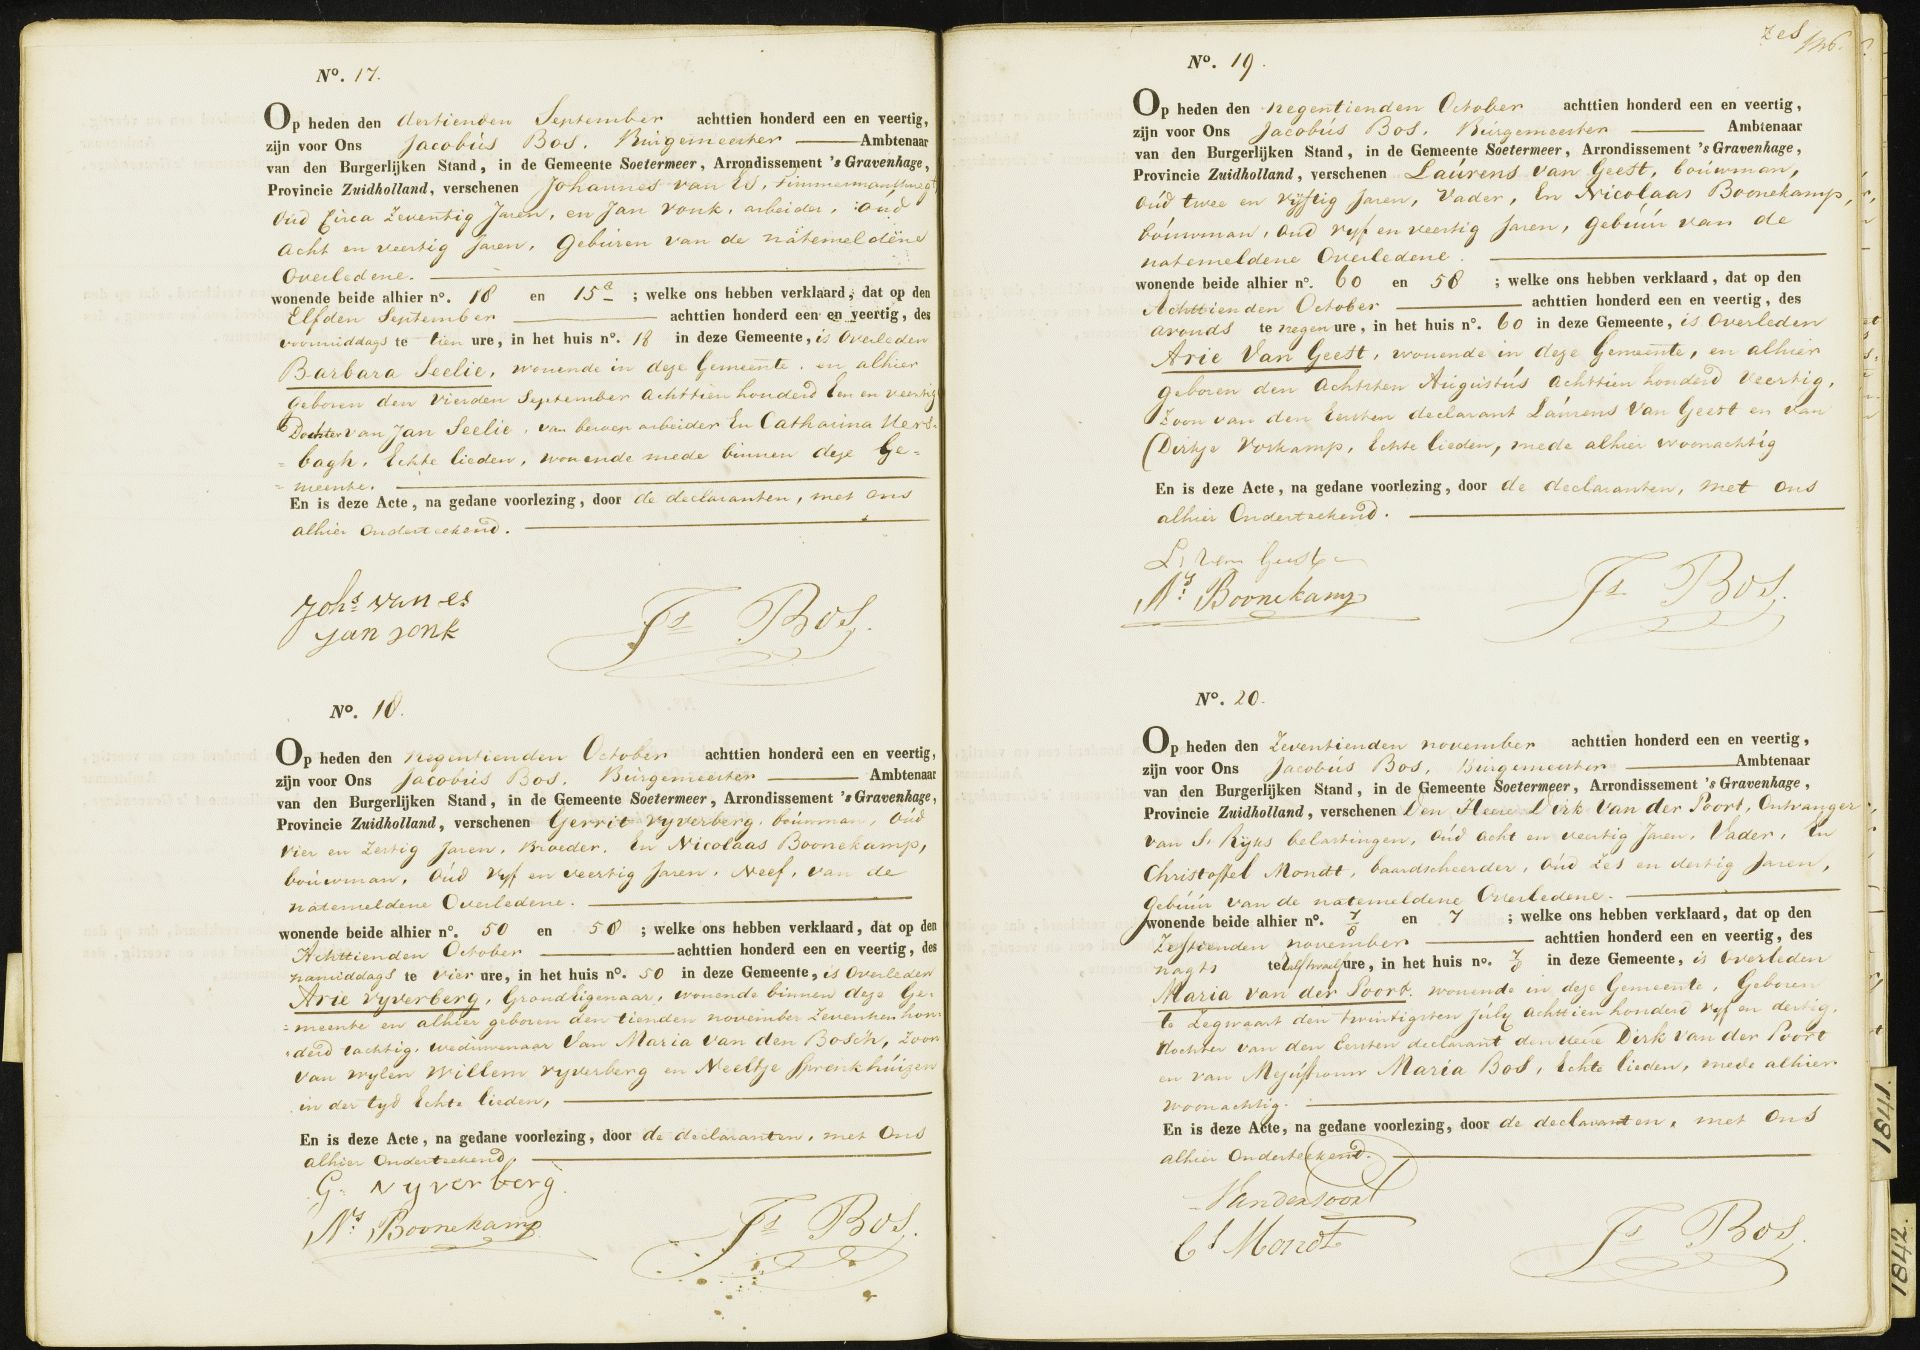 No. 17.
Op heden den dertienden September achttien honderd een en veertig,
zijn voor Ons Jacobús Bos. Burgemeester Ambtenaar
van den Burgerlijken Stand, in de Gemeente Soetermeer, Arrondissement 's Gravenhage,
Provincie Zuidholland, verschenen Johannes van Es, Timmermansknegt
oud Circa Zeventig Jaren, en Jan Vonk, arbeider, oúd
acht en veertig Jaren, Gebúren van de natemeldene
Overledene.
wonende beide alhier no. 18 en 15a ; welke ons hebben verklaard, dat op den
Elfden September achttien honderd een en veertig, des
voormiddags te tien ure, in het huis no. 18 in deze Gemeente, is Overleden
Barbara Seelie, wonende in deze Gemeente, en alhier
geboren den Vierden September achttien honderd Een en veertig
Dochter van Jan Seelie, van beroep arbeider En Catharina Hers-
=bagh, Echte lieden, wonende mede binnen deze Ge=
=meente.
En is deze Acte, na gedane voorlezing, door de declaranten, met ons
alhier onderteekend.
Johs van es
Jan vonk
Js Bos.
No. 18.
Op heden den negentienden October achttien honderd een en veertig,
zijn voor Ons Jacobús Bos. Búrgemeester Ambtenaar
van den Burgerlijken Stand, in de Gemeente Soetermeer, Arrondissement 's Gravenhage,
Provincie Zuidholland, verschenen Gerrit Vyverberg, boúwman, oúd
Vier en Zestig Jaren, Broeder, En Nicolaas Boonekamp,
boúwman, Oúd Vyf en veertig Jaren, Neef, van de
natemeldene Overledene.
wonende beide alhier no. 50 en 58 ; welke ons hebben verklaard, dat op den
Achttienden October achttien honderd een en veertig, des
namiddags te vier ure, in het huis no. 50 in deze Gemeente, is Overleden
Arie Vyverberg, Grondeigenaar, wonende binnen deze Ge-
=meente en alhier geboren den tienden november Zeventien hon-
=derd tachtig, weduwenaar Van Maria van den Bosch, Zoon
van wylen Willem Vyverberg en Neeltje Sprenkhúizen
in der tyd Echte lieden,
En is deze Acte, na gedane voorlezing, door de declaranten, met Ons
alhier Onderteekend.
G. Vyverberg
Ns Boonekamp
Js Bos.
zes
No. 19.
Op heden den negentienden October achttien honderd een en veertig,
zijn voor Ons Jacobús Bos. Búrgemeester Ambtenaar
van den Burgerlijken Stand, in de Gemeente Soetermeer, Arrondissement 's Gravenhage,
Provincie Zuidholland, verschenen Laúrens van Geest, boúwman,
oúd twee en vyftig Jaren, Vader, En Nicolaas Boonekamp,
boúwman, oud vyf en veertig Jaren, gebúúr van de
natemeldene Overledene.
wonende beide alhier no. 60 en 58 ; welke ons hebben verklaard, dat op den
Achttienden October achttien honderd een en veertig, des
avonds te negen ure, in het huis no. 60 in deze Gemeente, is Overleden
Arie Van Geest, wonende in deze Gemeente, en alhier
geboren den Achtsten Aúgústús achttien honderd Veertig,
Zoon van den Eersten declarant Laúrens Van Geest en van
Dirkje Voskamp, Echte lieden, mede alhier woonachtig
En is deze Acte, na gedane voorlezing, door de declaranten, met ons
alhier Onderteekend.
L. van Geest
Ns Boonekamp
Js Bos.
No. 20.
Op heden den Zeventienden november achttien honderd een en veertig,
zijn voor Ons Jacobús Bos, Búrgemeester Ambtenaar
van den Burgerlijken Stand, in de Gemeente Soetermeer, Arrondissement 's Gravenhage,
Provincie Zuidholland, verschenen Den Heere Dirk Van der Poort, Ontvanger
van S. Ryks belastingen, oúd acht en veertig Jaren, Vader, En
Christoffel Mondt, baardscheerder, Oúd Zes en dertig Jaren,
Gebúúr van de natemeldene Overledene.
wonende beide alhier no. 7/8 en 7 ; welke ons hebben verklaard, dat op den
Zestienden november achttien honderd een en veertig, des
nagts te half twaalf ure, in het huis no. 7/8 in deze Gemeente, is Overleden
Maria van der Poort. wonende in deze Gemeente, Geboren
te Zegwaart den twintigsten Júly achttien honderd vyf en dertig,
dochter van den Eersten declarant den heere Dirk Van der Poort
en van Mejuffrouw Maria Bos, Echte lieden, mede alhier
woonachtig.
En is deze Acte, na gedane voorlezing, door de declaranten, met Ons
alhier Onderteekend.
Vanderpoort
Cl Mondt
Js Bos.
1841.
1842.